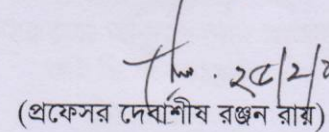 ২৫/২/
(প্রফেসর দেবাশীষ রঞ্জন রায়)